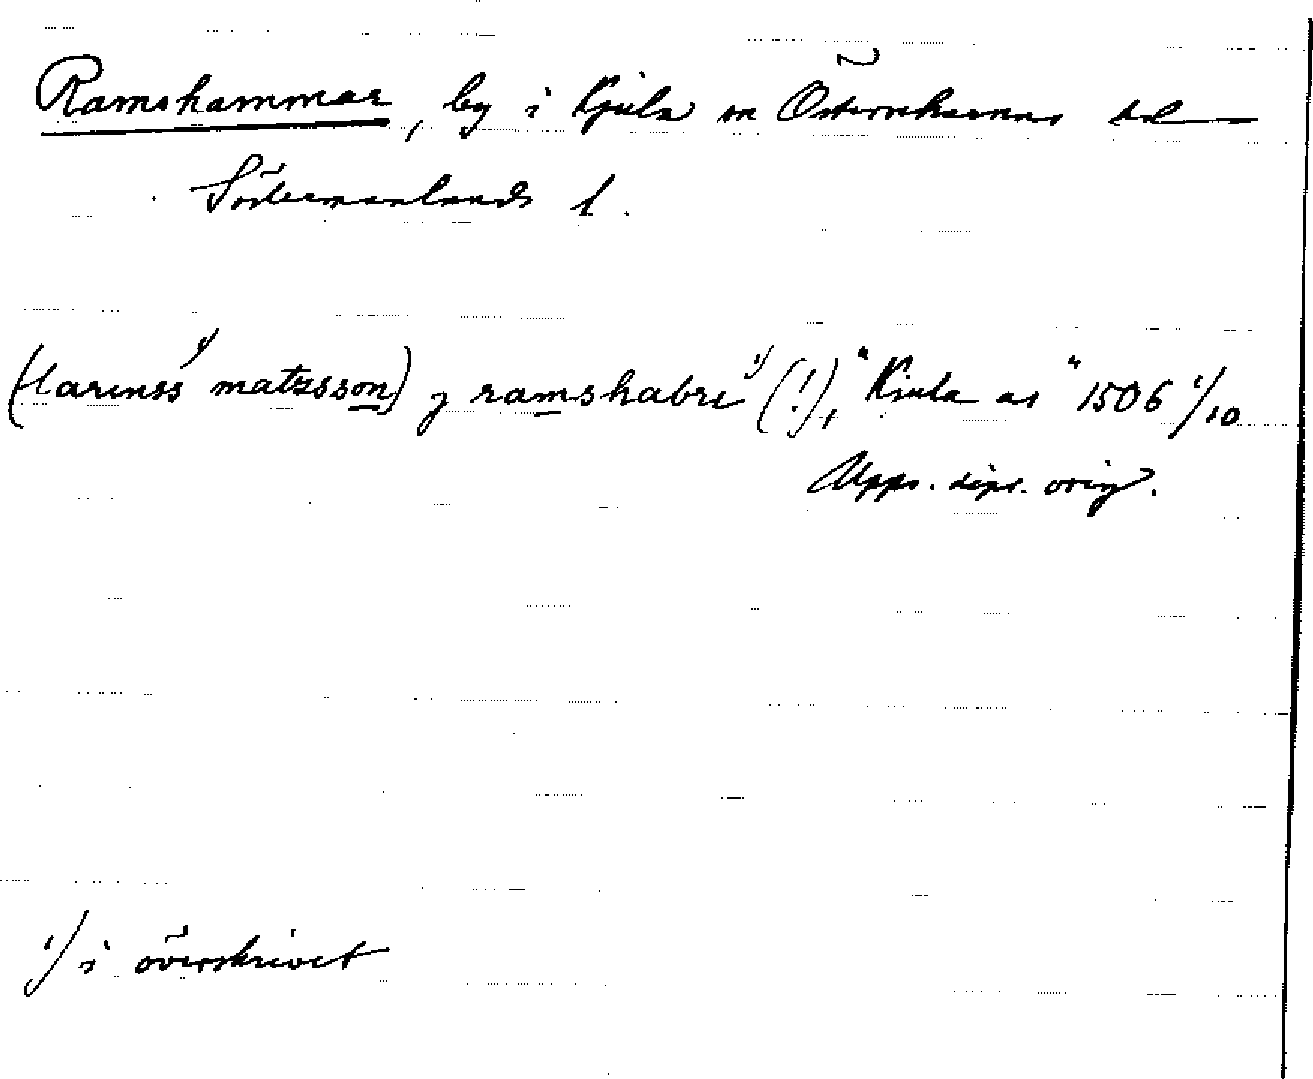 Ramshammar, by i Kjula sn Österrekarnes hd
Södermanlands l.
(larenss 1) matzsson) j ramshabre 1) (!), "Kiula as" 1506 1/10
Upps. dipl. orig.
1) i överskrivet